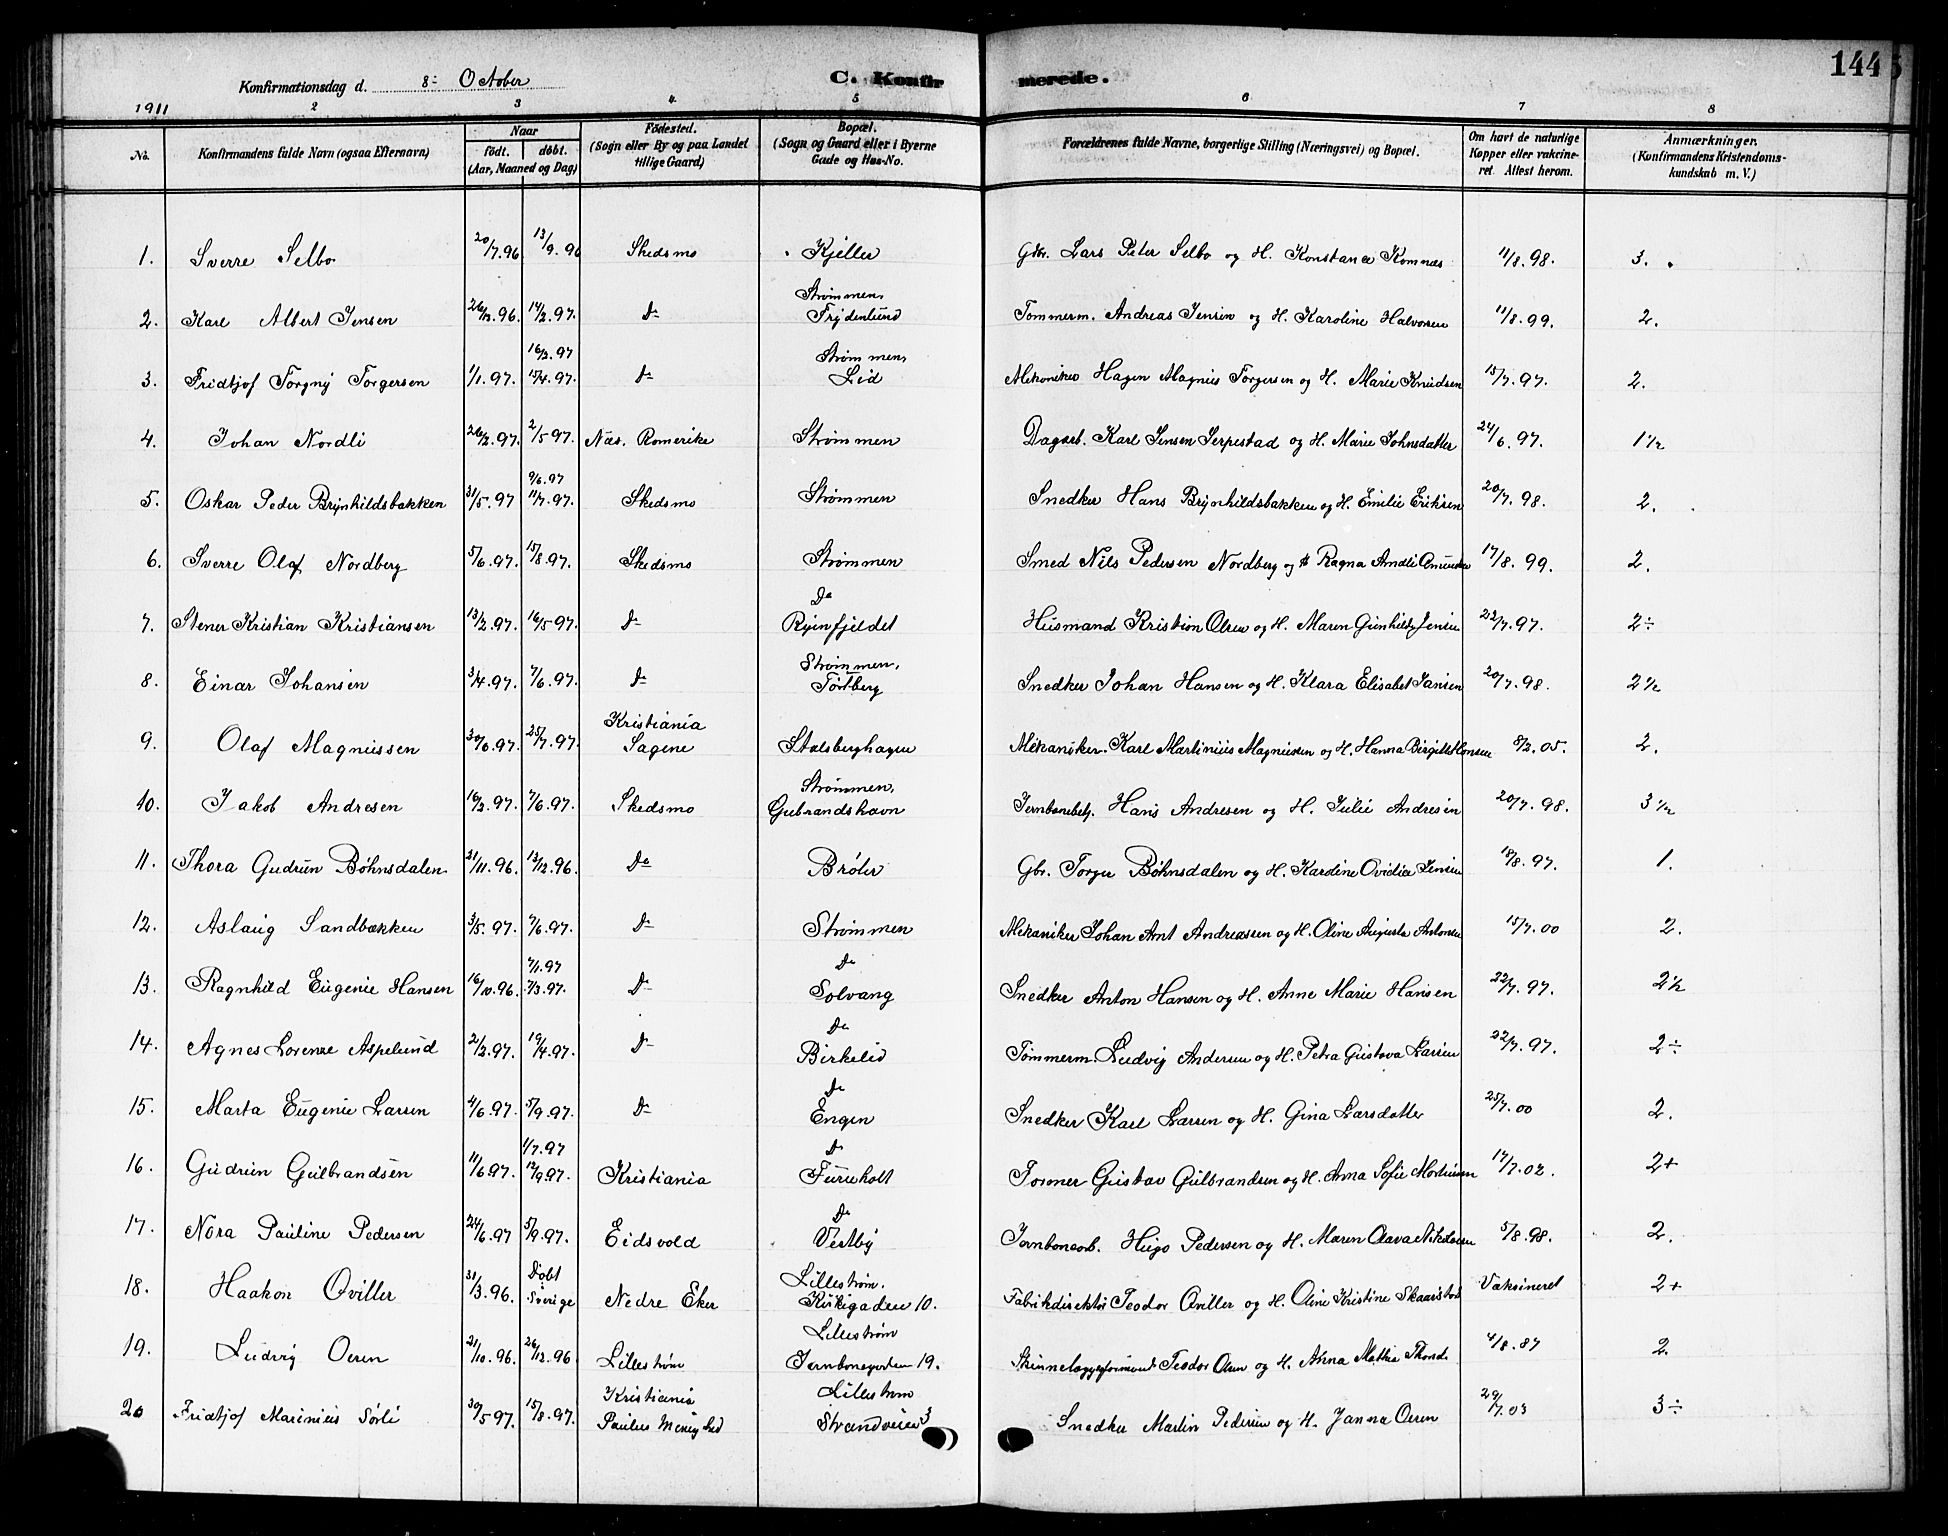 144
Konfirmationsdag d. 8de October
C. Konfirmerede.
1911 2 3 4 5 6 7 8
No. Konfirmandens fulde Navn (ogsaa Efternavn) Naar født. døbt. (Aar, Maaned og Dag) Fødested. (Sogn eller By og paa Landet tillige Gaard) Bopæl. (Sogn og Gaard eller i Byerne Gade og Hus-No. Forældrenes fulde Navne, borgerlige Stilling (Næringsvei) og Bopæl. Om havt de naturlige Kopper eller vakcineret. Attest herom. Anmærkninger. (Konfirmandens Kristendomskundskab m. V.)
1. Sverre Selbo 20/7.96 13/9.96 Skedsmo Kjeller Gbr. Lars Peter Selbo og H. Konstance Komnæs 11/8.98. 3.
2. Karl Albert Jensen 26/12.96. 14/2.97. Do Strømmen, Frydenlund Tømmerm. Andreas Jensen og H. Karoline Halvorsen 11/8.99. 2.
3. Fridtjof Torgny Torgersen 1/1.97. 16/2.97 15/4.97. Do Strømmen, Lid Mekaniker Hagen Magnus Torgersen og H. Marie Knudsen 15/7.97. 2.
4. Johan Nordli 26/2.97. 2/5.97. Næs. Romerike Strømmen Dagarb. Karl Jensen Serpestad og H. Marie Johnsdatter 24/6.97. 1 1/2
5. Oskar Peder Brynhildsbakken 31/5.97 9/6.97 11/7.97. Skedsmo Strømmen Snedker Hans Brynhildsbakken og H. Emilie Eriksen 20/7.98. 2.
6. Sverre Olaf Nordberg 5/6.97. 15/8.97. Skedsmo Strømmen Smed Nils Pedersen Nordberg og H Ragna Amdli 17/8.99. 2.
7. Stener Kristian Kristiansen 13/2.97. 16/5.97. Do Do Ryenfjeldet Husmand Kristian Olsen og H. Maren Gunhild Jensen 22/7.97. 2÷
8. Einar Johansen 3/4.97. 7/6.97. Do Strømmen, Tortberg Snedker Johan Hansen og H. Klara Elisabet Jansen 20/7.98. 2 1/2
9. Olaf Magnussen 30/6.97. 25/7.97. Kristiania Sagene Stalsberghagen Mekaniker Karl Martinius Magnussen og H. Hanna Birgitte Hansen 8/2.05. 2.
10. Jakob Andresen 16/2.97. 7/6.97. Skedsmo Strømmen, Gubrandshavn Jernbanebetj. Hans Andresen og H. Julie Andresen 20/7.98. 3 1/2
11. Thora Gudrun Bøhnsdalen 21/11.96. 13/12.96. Do Brøter Gbr. Torger Bøhnsdalen og H. Karoline Ovidia Jensen 18/8.97. 1.
12. Aslaug Sandbakken 3/5.97. 7/6.97. Do Strømmen Mekaniker Johan Arnt Andreassen og H. Oline Augusta Antonsen 15/7.00 2.
13. Ragnhild Eugenie Hansen 16/10.96. 7/1.97 7/3.97. Do Do Solvang Snedker Anton Hansen og H. Anne Marie Hansen 22/7.97. 2 1/2
14. Agnes Lorenze Aspelund 2/2.97. 19/4.97. Do Do Birkelid Tømmerm. Ludvig Andersen og H. Petra Gustava Larsen 22/7.97. 2÷
15. Marta Eugenie Larsen 4/6.97. 5/9.97. Do Do Engen Snedker Karl Larsen og H. Gina Larsdatter 25/7.00 2.
16. Gudrun Gulbrandsen 11/6.97. 1/7.97 12/9.97. Kristiania Do Furuholt Former Gustav Gulbrandsen og H. Anna Sofie Mortensen 17/7.02. 2+
17. Nora Pauline Pedersen 24/6.97 5/9.97. Eidsvold Do Vestby Jernbanearb. Hugo Pedersen og H. Maren Olava Nikolaisen 5/8.98. 2.
18. Haakon Oviller 31/3.96. Døbt Sverige Nedre Eker Lillestrøm. Kirkegaden 10. Fabrikdirektør Teodor Oviller og H. Oline Kristine Skaarstad Vaksineret 2+
19. Ludvig Olsen 21/10.96. 26/12.96 Lillestrøm Lillestrøm Jernbanegaden 19. Skinnelæggerformand Teodor Olsen og H. Anna Mathea 4/8.87 2.
20 Fridtjof Marinius Sørli 30/5.97. 15/8.97. Kristiania Paulus Menighed Lillestrøm Strandveien 3 Snedker Martin Pedersen og H. Janna Olsen 29/7.03 3÷